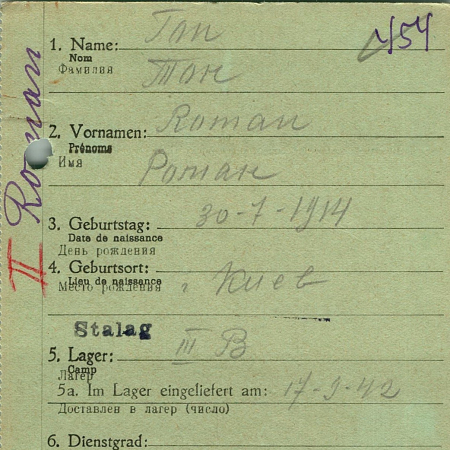 454
1. Name: Топ
Nom
Фамилия Топ
2. Vornamen: Roman
Prénoms
Имя Роман
3. Geburtstag: 30-7-1914
Date de naissance
День рождения
4. Geburtsort:
Lieu de naissance
Место рождения г Киев
Stalag
5. Lager: III B
Camp
Лагер
5a. Im Lager eingeliefert am: 17-9-42
Доставлен в лагер (число)
6. Dienstgrad:
II Roman